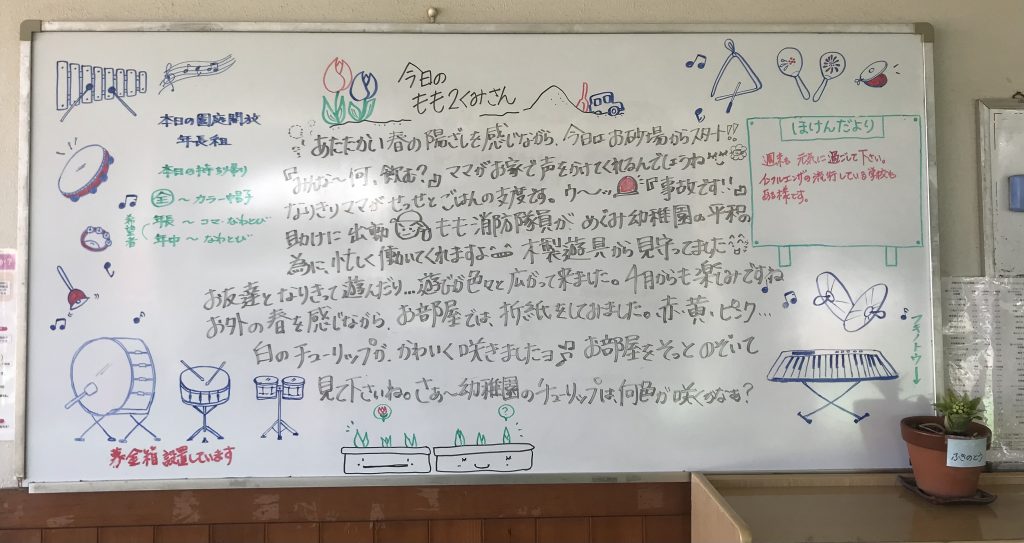 今日の
もも2くみさん
本日の園庭開放
年長組
本日の持ち帰り
全～カラー帽子
希望者
年長～コマ・なわとび
年中～なわとび
あたたかい春の陽ざしを感じながら、今日はお砂場からスタート!!
『みんな～何、飲む？』ママがお家で声をかけてくれるんでしょうね
なりきりママがせっせとごはんの支度です。ウ～ 『事故です!!』
助けに出動 もも消防隊員が、めぐみ幼稚園の平和の
為に、忙しく働いてくれますよ 木製遊具から見守ってました
お友達となりきって遊んだり…遊びが色々と広がって来ました。4月からも楽しみですね
お外の春を感じながら、お部屋では、折紙をしてみました。赤・黄・ピンク…
白のチューリップが、かわいく咲きましたヨ♪ お部屋をそっとのぞいて
見て下さいね。さぁ～幼稚園のチューリップは、何色が咲くかなぁ？
?
ほけんだより
週末も元気に過ごして下さい。
インフルエンザの流行している学校も
ある様です。
フキノトウ→
ふきのとう
募金箱設置しています